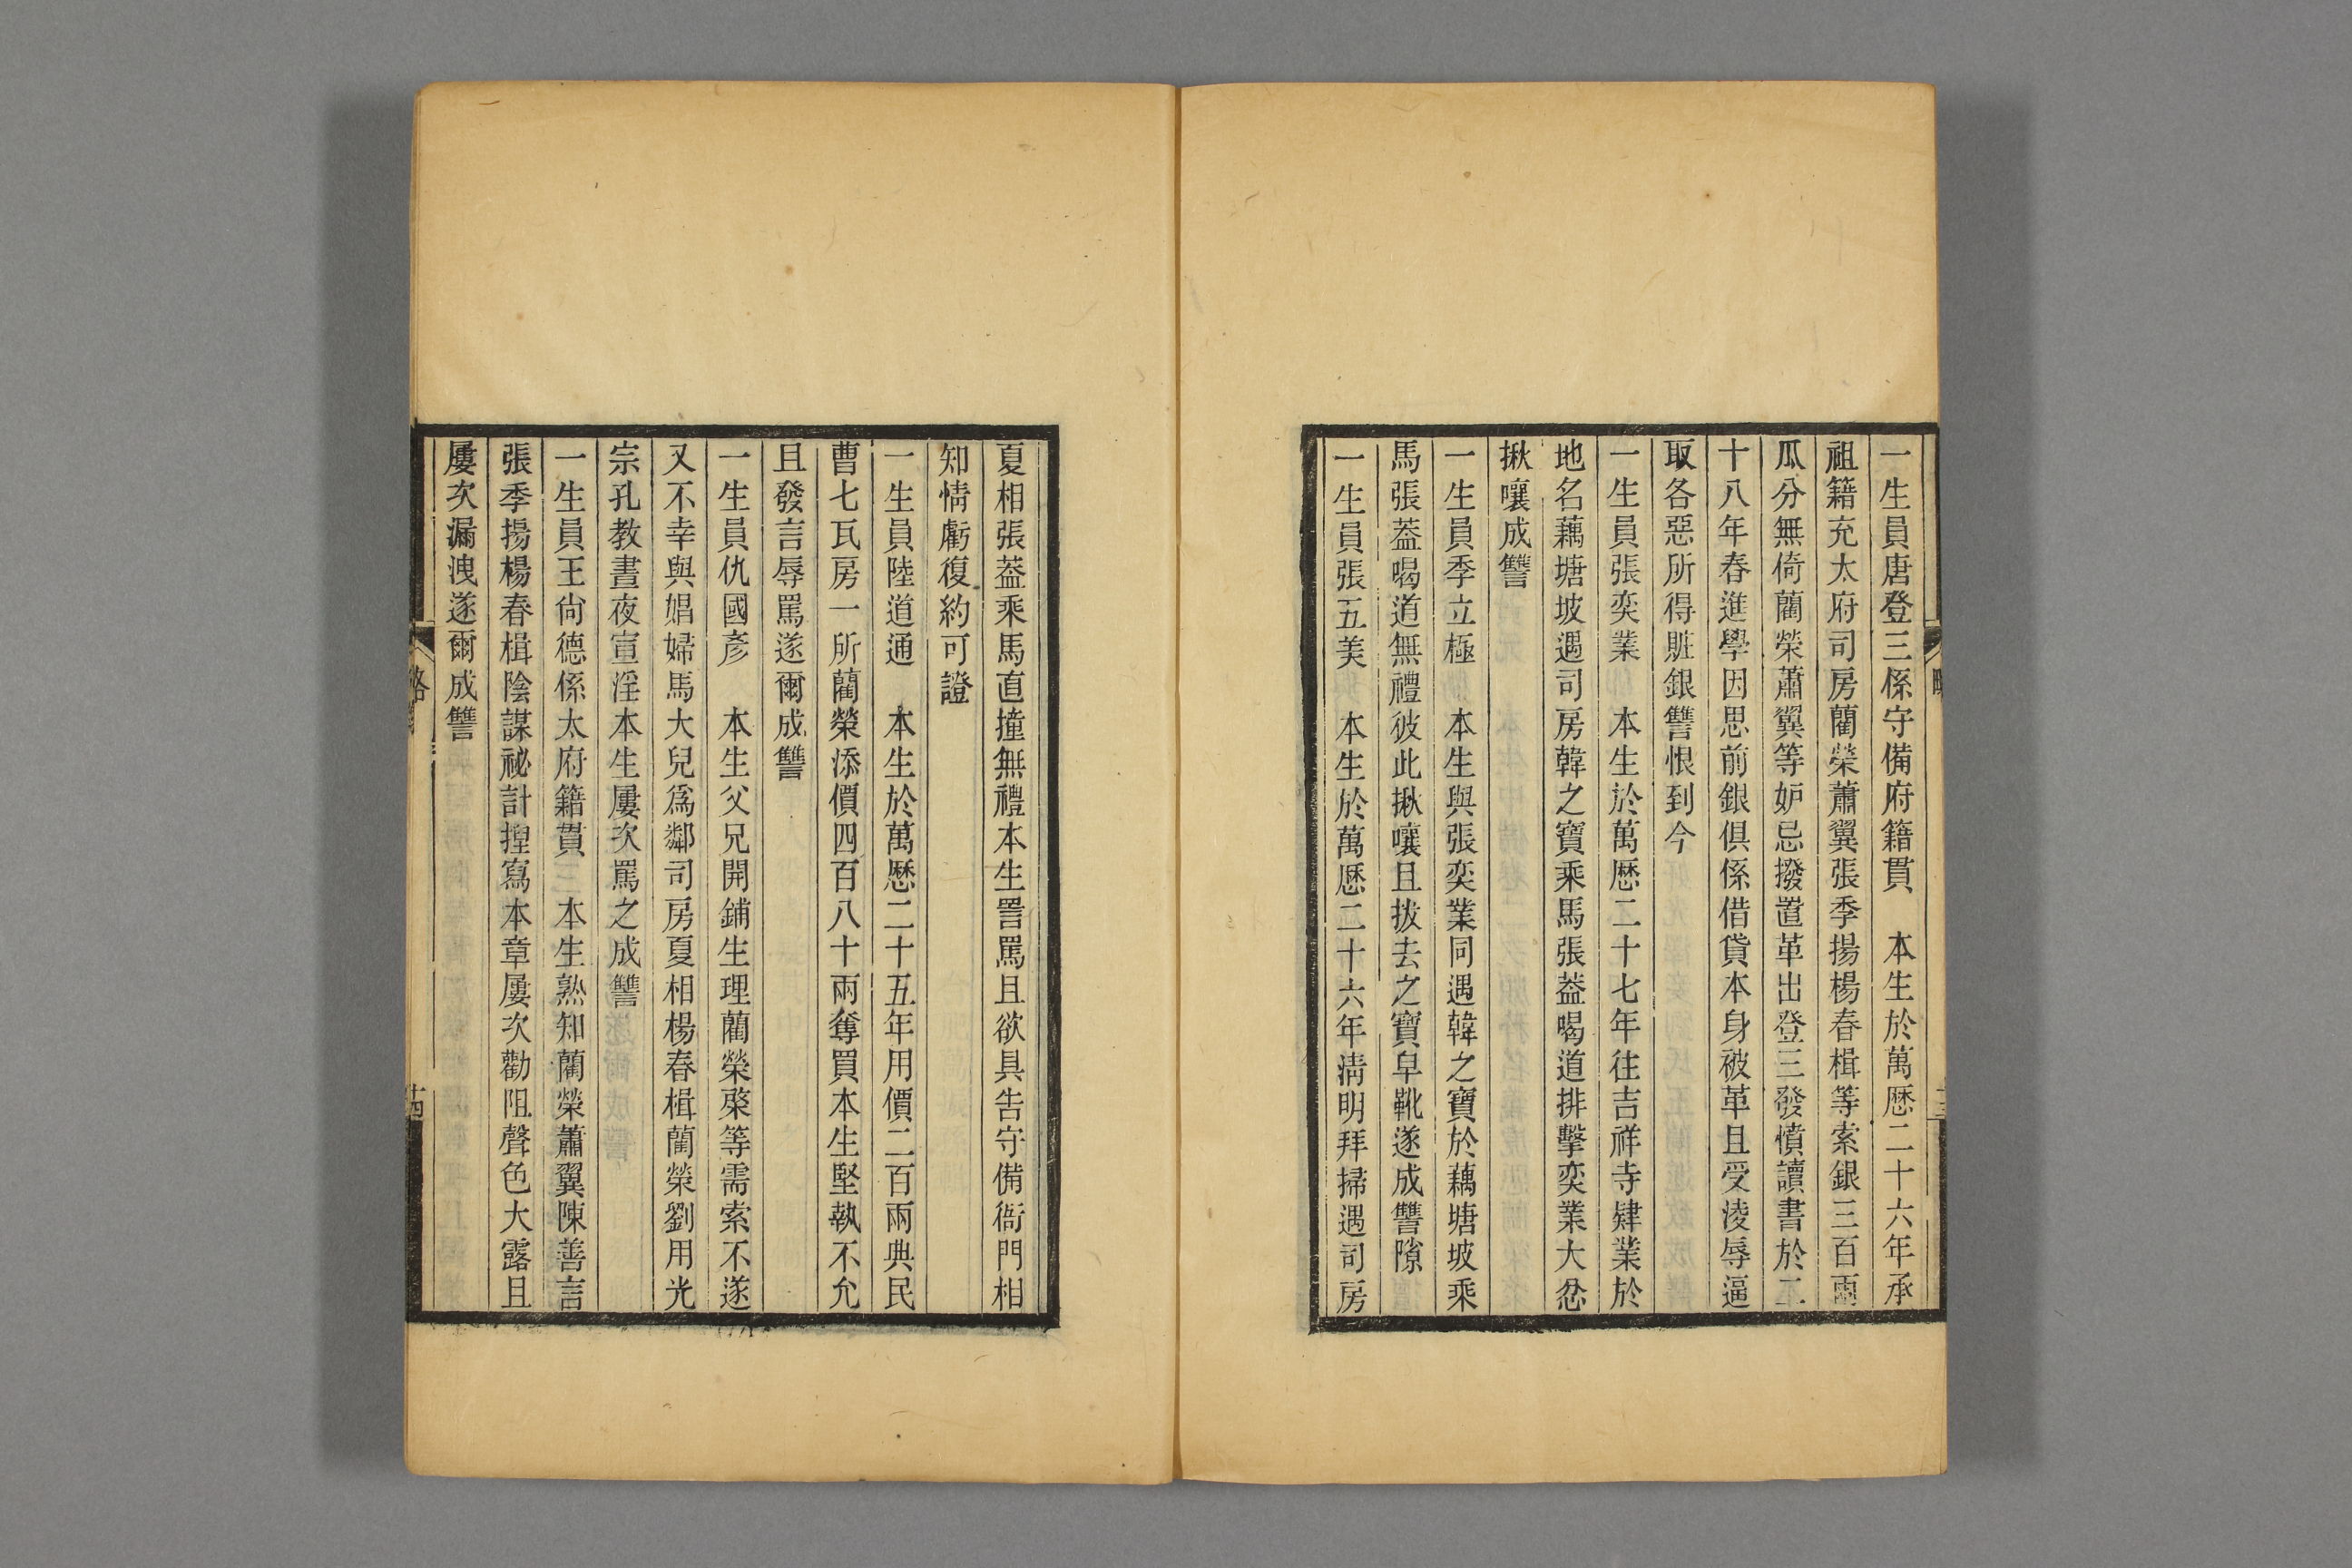 一生員唐登三係守備府籍貫　本生於萬曆二十六年承
祖籍充太府司房藺榮蕭翼張季揚楊春楫等索銀三百兩
瓜分無倚藺榮蕭翼等妒忌撥置革出登三發憤讀書於二
十八年春進學因思前銀俱係借貸本身被革且受淩辱逼
取各惡所得賍銀讐恨到今
一生員張奕業　本生於萬曆二十七年往吉祥寺肄業於
地名藕塘坡遇司房韓之寶乘馬張葢喝道排擊奕業大忿
揪嚷成讐
一生員季立極　本生與張奕業同遇韓之寶於藕塘坡乘
馬張葢喝道無禮彼此揪嚷且拔去之寶皁靴遂成讐隙
一生員張五美　本生於萬曆二十六年淸明拜掃遇司房
夏相張葢乘馬直撞無禮本生詈罵且欲具吿守備衙門相
知情虧復約可證
一生員陸道通　本生於萬曆二十五年用價二百兩典民
曹七瓦房一所藺榮添價四百八十兩奪買本生堅執不允
且發言辱罵遂爾成讐
一生員仇國彥　本生父兄開鋪生理藺榮棨等需索不遂
又不幸與娼婦馬大兒爲鄰司房夏相楊春楫藺榮劉用光
宗孔教晝夜宣淫本生屢次罵之成讐
一生員王尙德係太府籍貫　本生熟知藺榮蕭翼陳善言
張季揚楊春楫陰謀祕計揑寫本章屢次勸阻聲色大露且
屢次漏洩遂爾成讐
略
十四